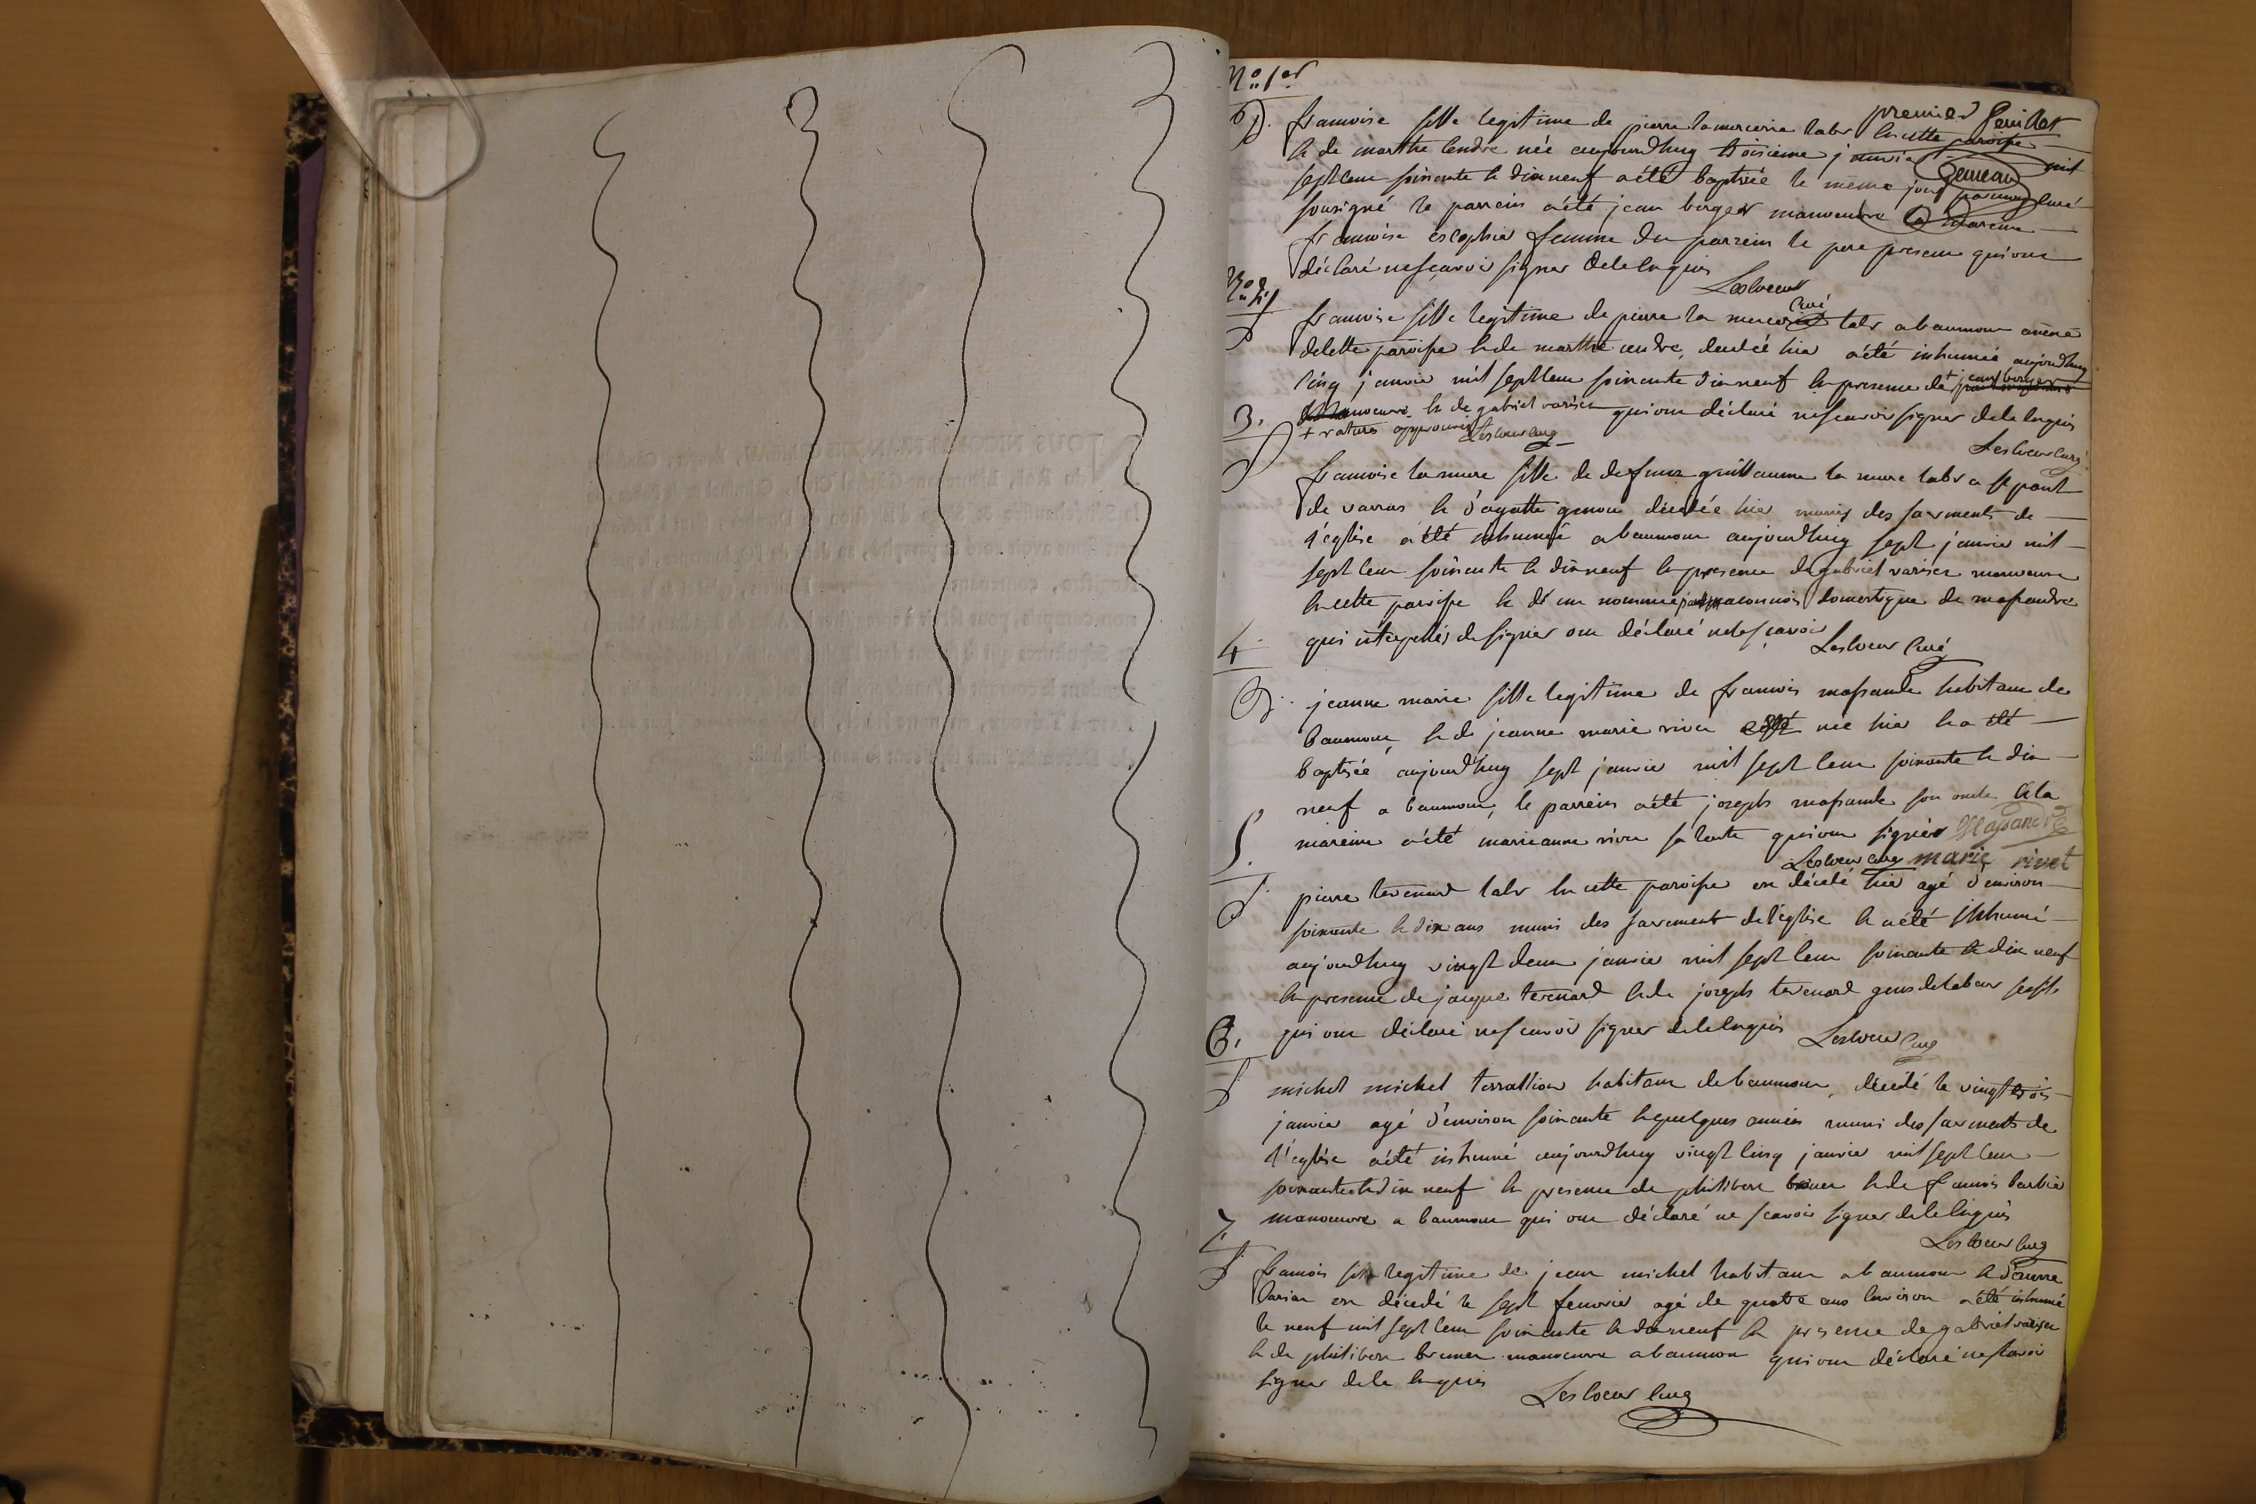 N.o 1.er
premier feuillet
B. francoise fille legitime de pierre lamercerie labr en cette paroisse
et de marthe cendre née aujourdhuy troisieme janvier mil
sept cent soixante et dix neuf a été baptisée le meme jour par moy curé
sousigné le parrein a été jean berger manoeuvre la mareine
francoise escophier femme du parrein le pere present qui ont
déclaré ne scavoir signer de ce enquis
Lescoeur curé
N.o 2
S francoise fille legitime de pierre la mercerie labr a baumont annexe
de cette paroisse et de marthe cendre, decedée hier a été inhumée aujourdhuy
cinq janvier mil sept cent soixante dix neuf en presence de + jean berger
manoeuvre et de gabriel qui ont déclaré ne scavoir signer de ce enquis
+ rature approuvée Lescoeur curé
Lescoeur curé
3.
S francoise la mure fille de defunt guillaume la mure labr a st paul
de varax et d'agathe decedée hier munie des sacrements de
l'église a été inhumée a baumont aujourdhuy sept janvier mil
sept cent soixante et dix neuf en presence de gabriel manoeuvre
en cette paroisse et d'un nommé domestique de massandre
qui interpellés de signer ont déclaré ne le scavoir
Lescoeur Curé
4
B. jeanne marie fille legitime de francois massandre habitant de
baumont, et de jeanne marie rivet née hier et a été
baptisée aujourdhuy sept janvier mil sept cent soixante et dix
neuf a baumont, le parrein a été joseph massandre son oncle et la
mareine a été marieanne rivet sa tante qui ont signés Massandre
Lescoeur curé marie rivet
5.
S pierre tevenard labr en cette paroisse est décedé hier agé d'environ
soixante et dix ans muni des sacrement de l'église et a été inhumé
aujourdhuy vingt deux janvier mil sept cent soixante et dix neuf
en presence de jacque tevenard et de joseph tevenard gens de labeur
qui ont déclaré ne scavoir signer de ce enquis
Lescoeur Curé
6.
S michel michel habitant de baumont, décedé le vingt trois
janvier agé d'environ soixante et quelques années muni des sacrements de
l'église a été inhumé aujourdhuy vingt cinq janvier mil sept cent
soixante et dix neuf en presence de philibert et de francois barbier
manoeuvre a baumont qui ont déclaré ne scavoir signer de ce enquis
Lescoeur Curé
7.
S francois fils legitime de jean michel habitant a baumont et d'anne
est décedé le sept fevrier agé de quatre ans environ a été inhumé
le neuf mil sept cent soixante et dix neuf en presence de gabriel
et de philibert manoeuvre a baumont qui ont déclaré ne scavoir
signer de ce enquis
Lescoeur Curé